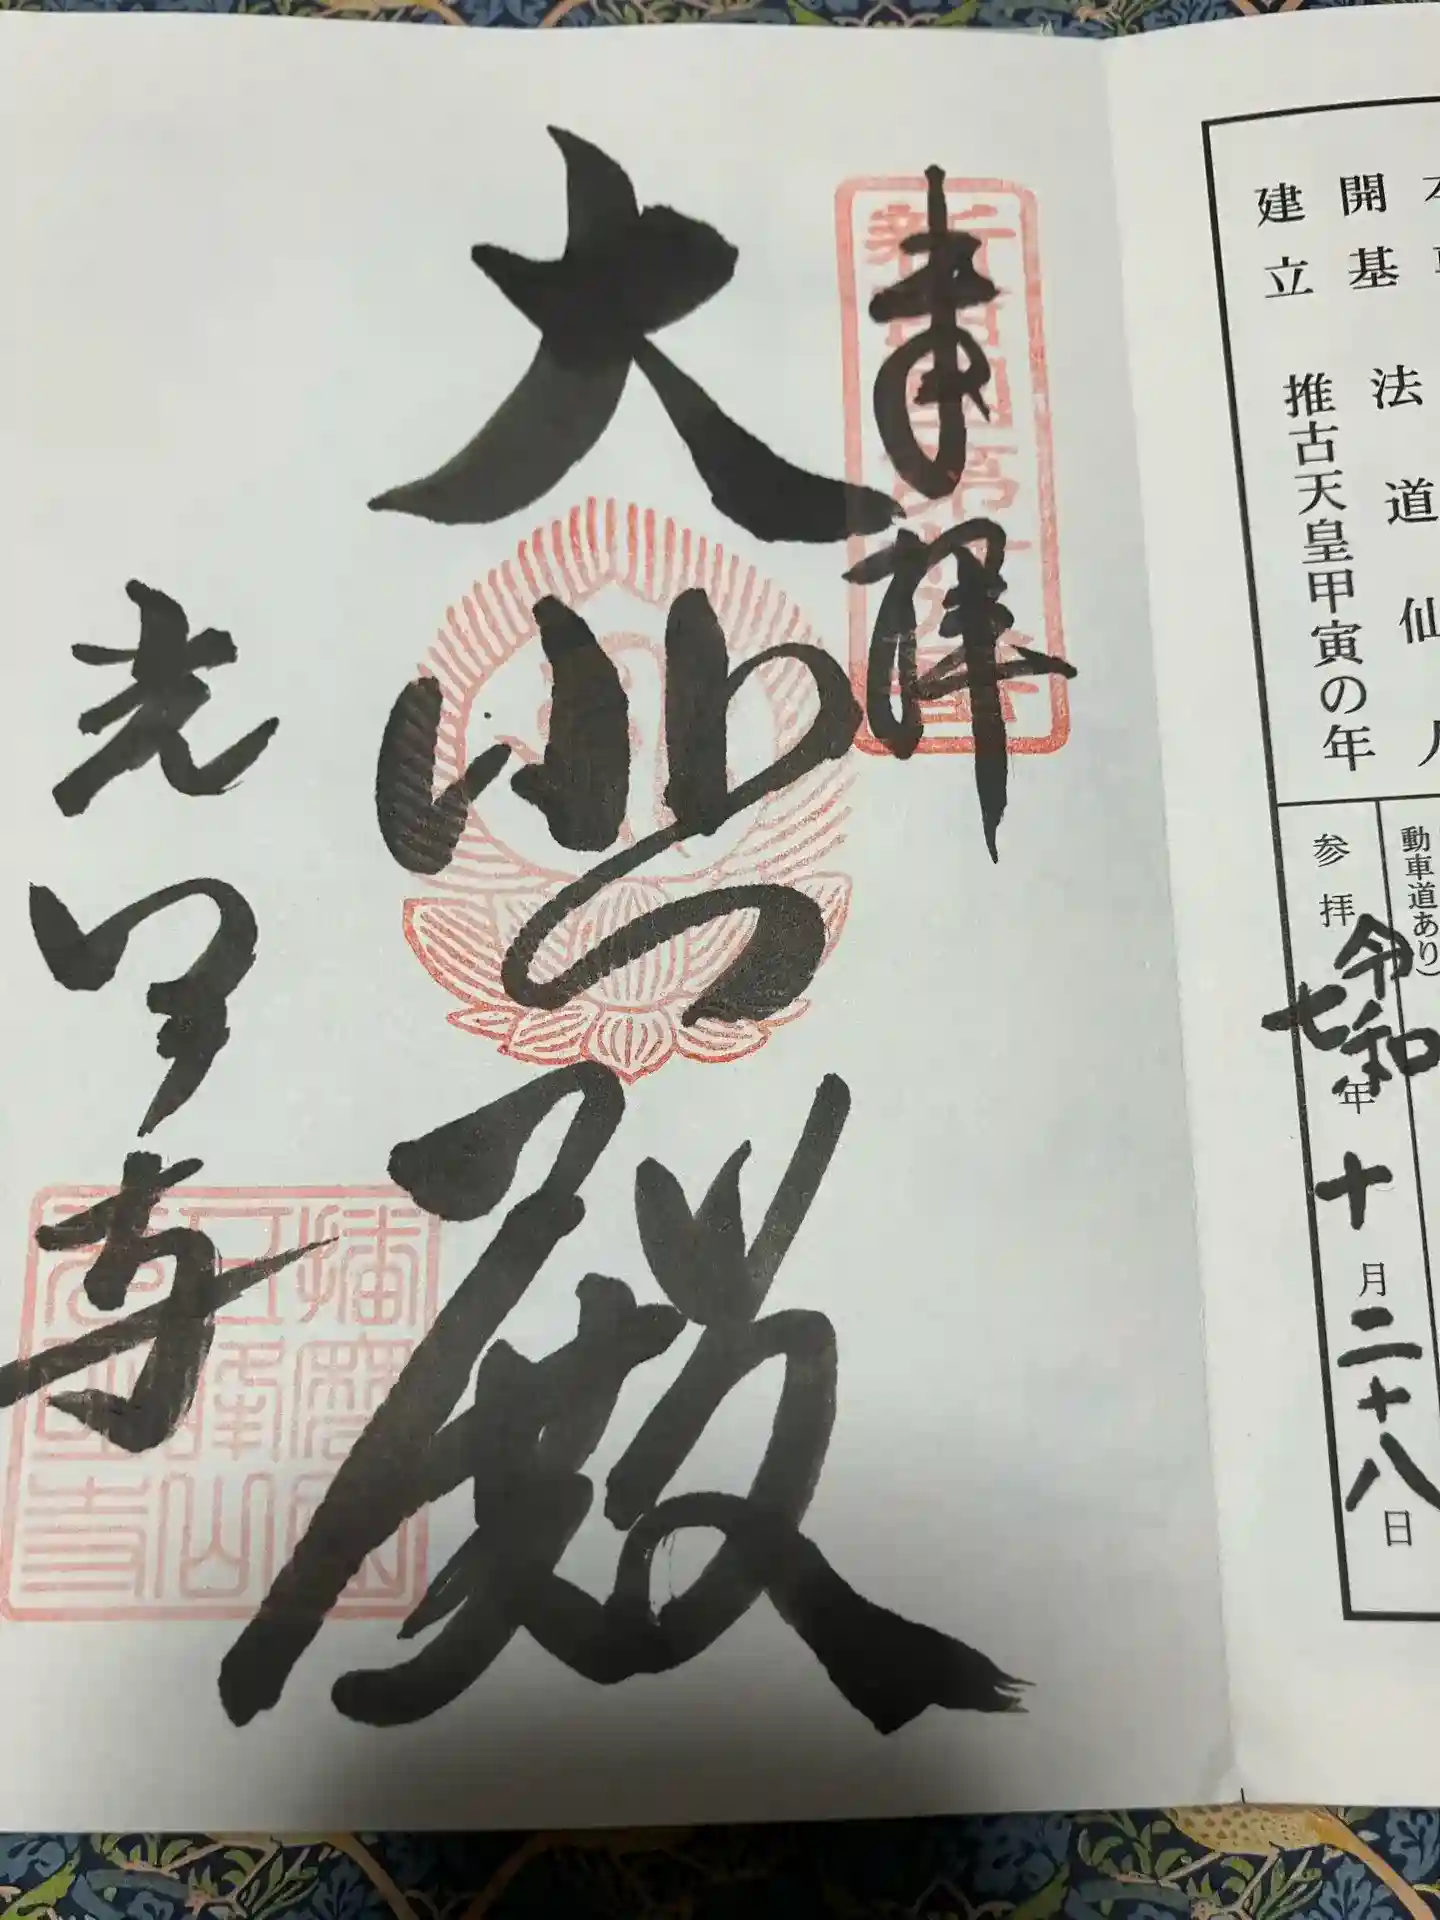 開基 法道仙人
建立 推古天皇甲寅の年
動車道あり)
参拝 令和七年十月二十八日
奉拝
新西国第廿八番
大悲殿
光明寺
播磨国
五峰山
光明寺